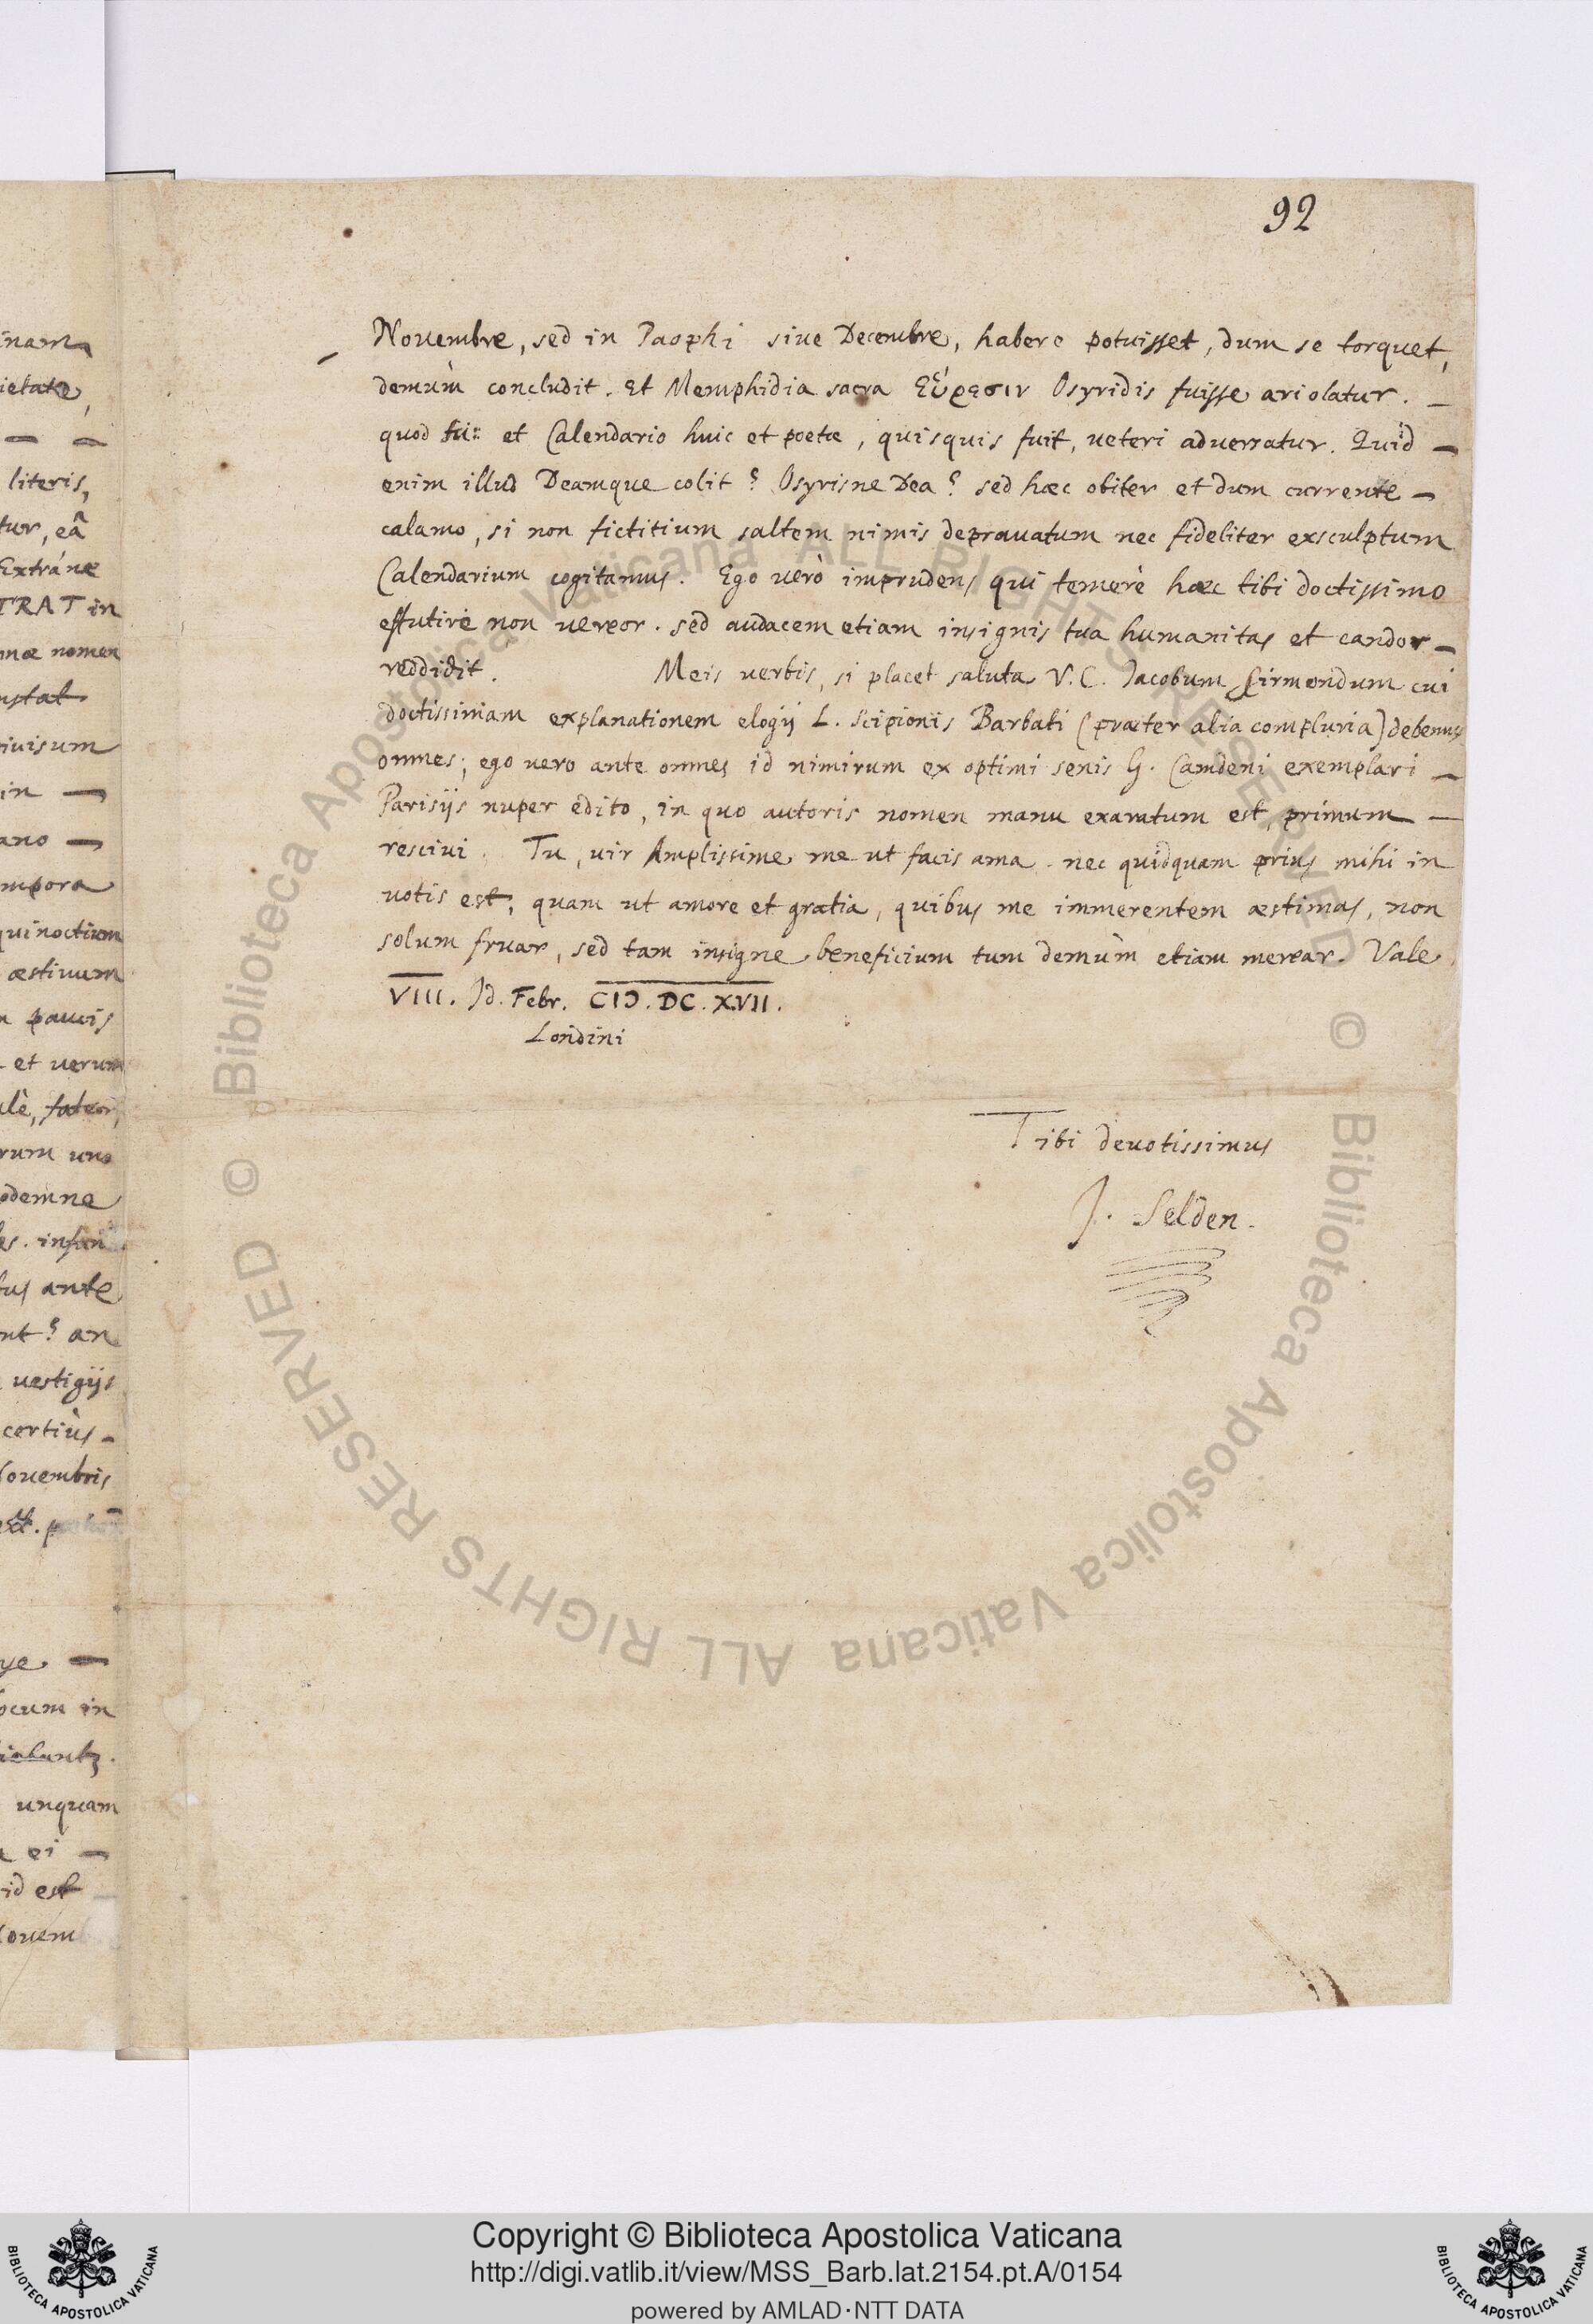 92
Nouembre, sed in Paophi siue Decembre, habere potuisset, dum se torquet,
demùm concludit. et Memphidia sacra Εὕρεσιν Osyridis fuisse ariolatur.
quod et Calendario huic et poetæ, quisquis fuit, ueteri aduersatur. Quid
enim illud Deamque colit? Osyrisne Dea? sed hæc obiter et dum currente
calamo, si non fictitium saltem nimis deprauatum nec fideliter exsculptum
Calendarium cogitamus. Ego verò imprudens qui temerè hæc tibi doctissimo
effutire non uereor. sed audacem etiam insignis tua humanitas et candor
reddidit. Meis uerbis, si placet saluta V.C. Jacobum Sirmondum cui
doctissimam explanationem elogij L. Scipionis Barbati (præter alia compluria) debemus
omnes; ego uero ante omnes id nimirum ex optimi senis G. Camdeni exemplari
Parisijs nuper edito, in quo autoris nomen manu exaratum est, primum
resciui. Tu, uir Amplissime me ut facis ama. nec quidquam prius mihi in
uotis est, quam ut amore et gratia, quibus me immerentem æstimas, non
solum fruar, sed tam insigne beneficium tum demùm etiam merear. Vale.
VIII. Id. Febr. CIↃ.DC.XVII.
Londini
Tibi deuotissimus
J. Selden.
inam
ietate,
literis,
tur, eâ
Extránæ
TRAT in
mæ nomen
nstat
iuisum
in
ano
mpora
quinoctium
æstiuum
paucis
et uerum
lè, fateor,
rum uno
odemne
tus ante
nt? an
uestigijs
certiùs
Nouembris
ocum in
unquam
ei
id est
Nouem
© Biblioteca Apostolica Vaticana ALL RIGHTS RESERVED
© Biblioteca Apostolica Vaticana ALL RIGHTS RESERVED
Copyright © Biblioteca Apostolica Vaticana
http://digi.vatlib.it/view/MSS_Barb.lat.2154.pt.A/0154
powered by AMLAD·NTT DATA
BIBLIOTECA APOSTOLICA VATICANA
BIBLIOTECA APOSTOLICA VATICANA